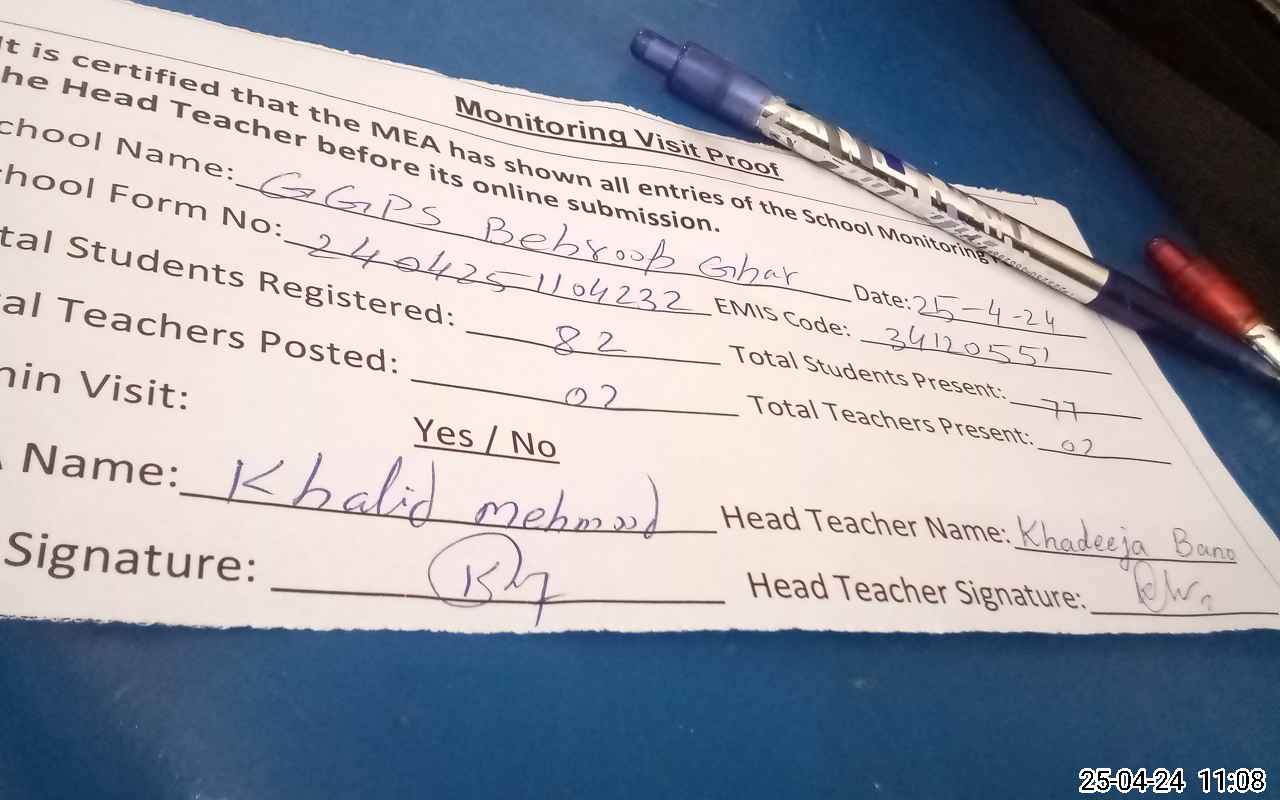 Monitoring Visit Proof
It is certified that the MEA has shown all entries of the School Monitoring
he Head Teacher before its online submission.
chool Name: GGPS Behroop Ghar Date: 25-4-24
hool Form No: 2404251104232 EMIS Code: 34120551
tal Students Registered: 82 Total Students Present: 77
al Teachers Posted: 02 Total Teachers Present: 02
min Visit: Yes / No
Name: Khalid mehmood Head Teacher Name: Khadeeja Bano
Signature: Head Teacher Signature:
25-04-24 11:08